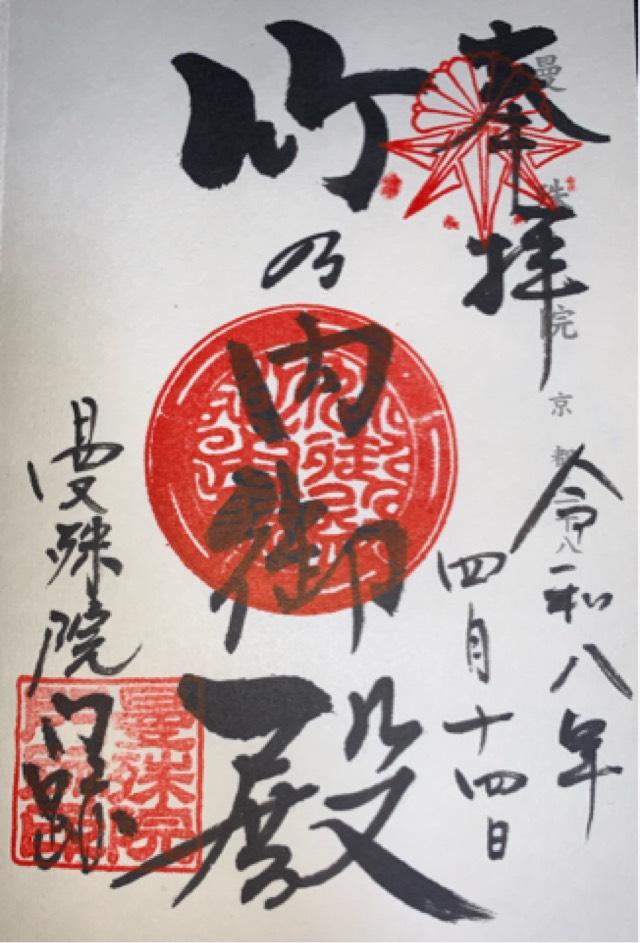 奉拝
曼殊院 京都
令和八年
四月十四日
竹の内御殿
曼殊院
門跡
曼殊院